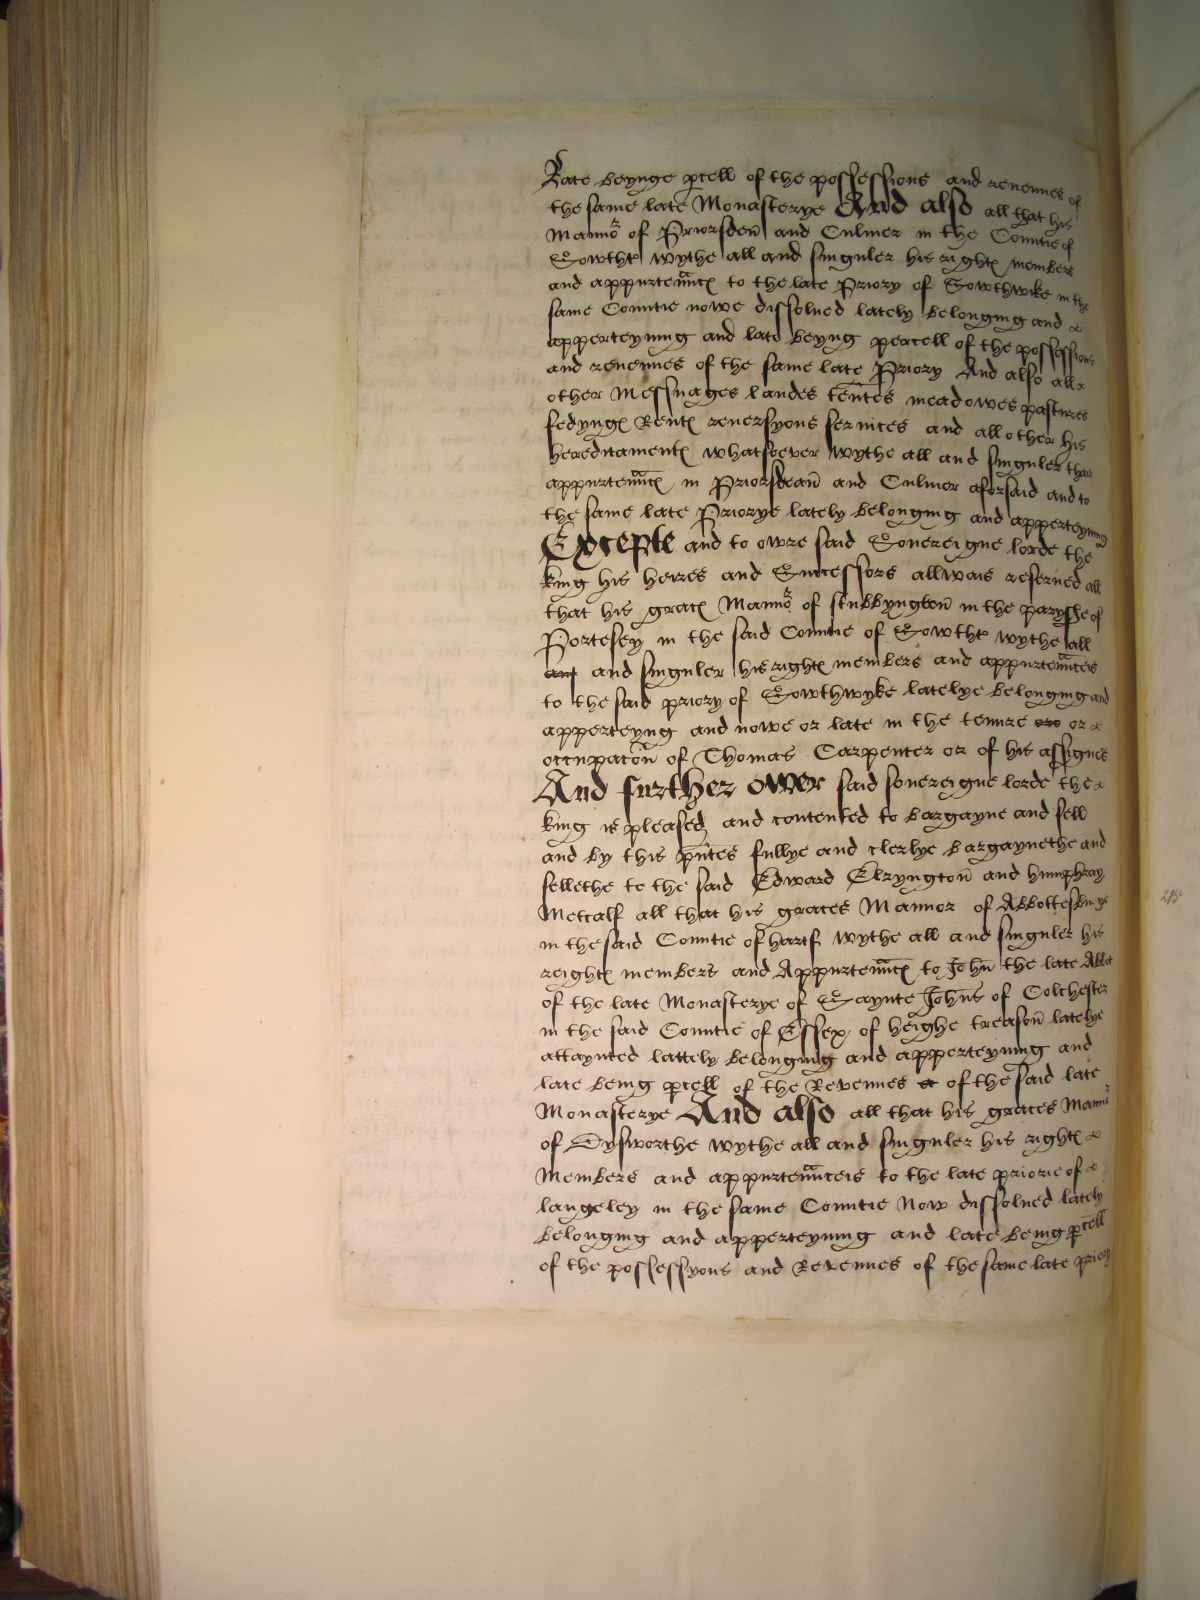 Late beynge p'cell of the possessions and revenues of
the same late Monasterye And also all that his
Manno^r of Priorsden̄ and Culmer in the Countie of
Sowtht' wythe all and singuler his right℮ members
and appurten̄nc℮ to the late Priory of Sowthwike in the
same Countie nowe dissolved lately belonging and
apperteynıng and late beyng percell of the possessions
and revenues of the same late Priory And also all
other Messuages landes ten̄tes meadowes pastures
fedyng℮ Rent℮ reversyons services and all other his
hereditament℮ whatsoever wythe all and singuler thar
appurten̄nc℮ in Priorsdean̄ and Culmer aforsaid and to
the same late Priorye lately belonging and apperteynıng
Excepte and to owre said Sovereigne lorde the
king his heires and Successors allwais reserved all
that his grac℮ Manno^r of stubbyngton̄ in the paryshe of
Portesey in the said Countie of Sowtht' wythe all
and and singuler his right℮ members and appurten̄nceis
to the said priory of Sowthwyke latelye belonging and
apperteyng and nowe or late in the tenure ore or
occupac̄on of Thomas Carpenter or of his assignes
And further ower said sovereigne lorde the
king is pleased and contented to bargayne and sell
and by this p̄ntes fullye and clerlye bargaynethe and
sellethe to the said Edward Elryngton̄ and humphray
Metcalf all that his graces Mannor of Abbottesbınge
in the said Countie of hartf wythe all and singuler his
reight℮ members and Appurten̄nc℮ to Joh̄n the late Abbot
of the late Monasterye of Saynte Joh̄ns of Colchester
in the said Countie of Essex of heighe treason̄ latelye
attaynted lattely belonging and apperteynıng and
late being p'cell of the Revenues et of the said late
Monasterye And also all that his graces Manno^r
of Dysworthe wythe all and singuler his right℮
Members and appurten̄nceis to the late priorie of
langeley in the same Countie Now dissolved lately
belonging and apperteynıng and late being p'cell
of the possessyons and Revenues of the same late priory